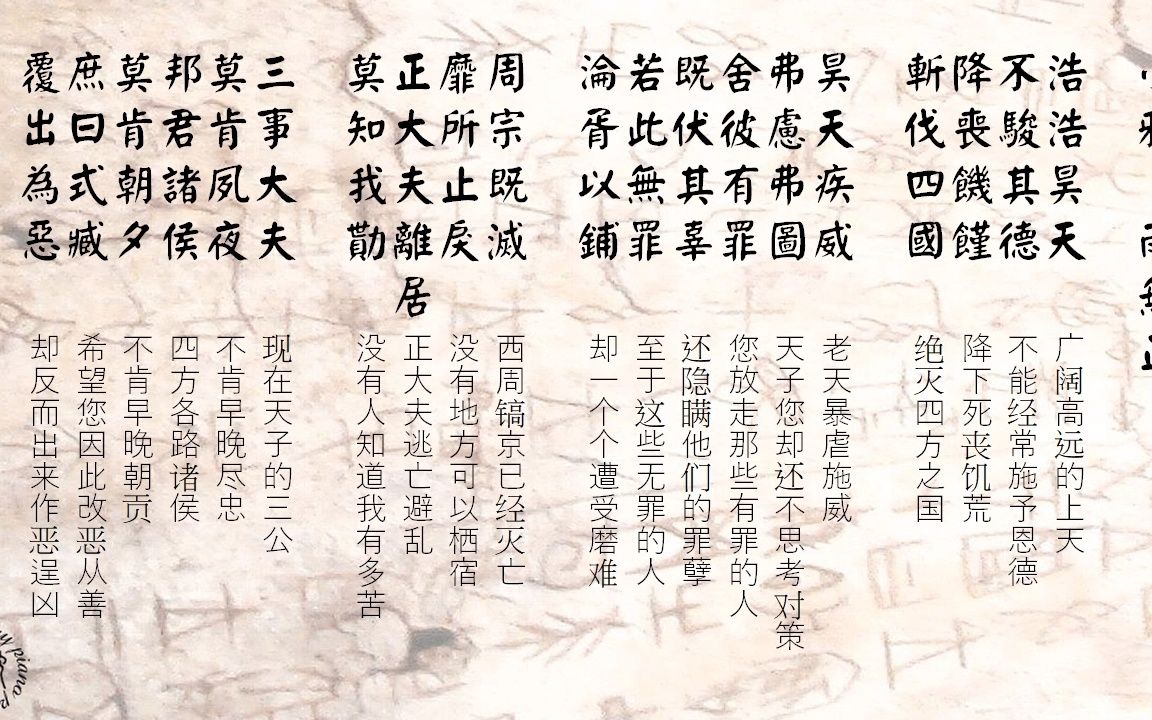 浩浩昊天
不駿其德
降喪饑饉
斬伐四國
昊天疾威
弗慮弗圖
舍彼有罪
既伏其辜
若此無罪
淪胥以鋪
周宗既滅
靡所止戾
正大夫離居
莫知我勩
三事大夫
莫肯夙夜
邦君諸侯
莫肯朝夕
庶曰式臧
覆出為惡
广阔高远的上天
不能经常施予恩德
降下死丧饥荒
绝灭四方之国
老天暴虐施威
天子您却还不思考对策
您放走那些有罪的人
还隐瞒他们的罪孽
至于这些无罪的人
却一个个遭受磨难
西周镐京已经灭亡
没有地方可以栖宿
正大夫逃亡避乱
没有人知道我有多苦
现在天子的三公
不肯早晚尽忠
四方各路诸侯
不肯早晚朝贡
希望您因此改恶从善
却反而出来作恶逞凶
piano